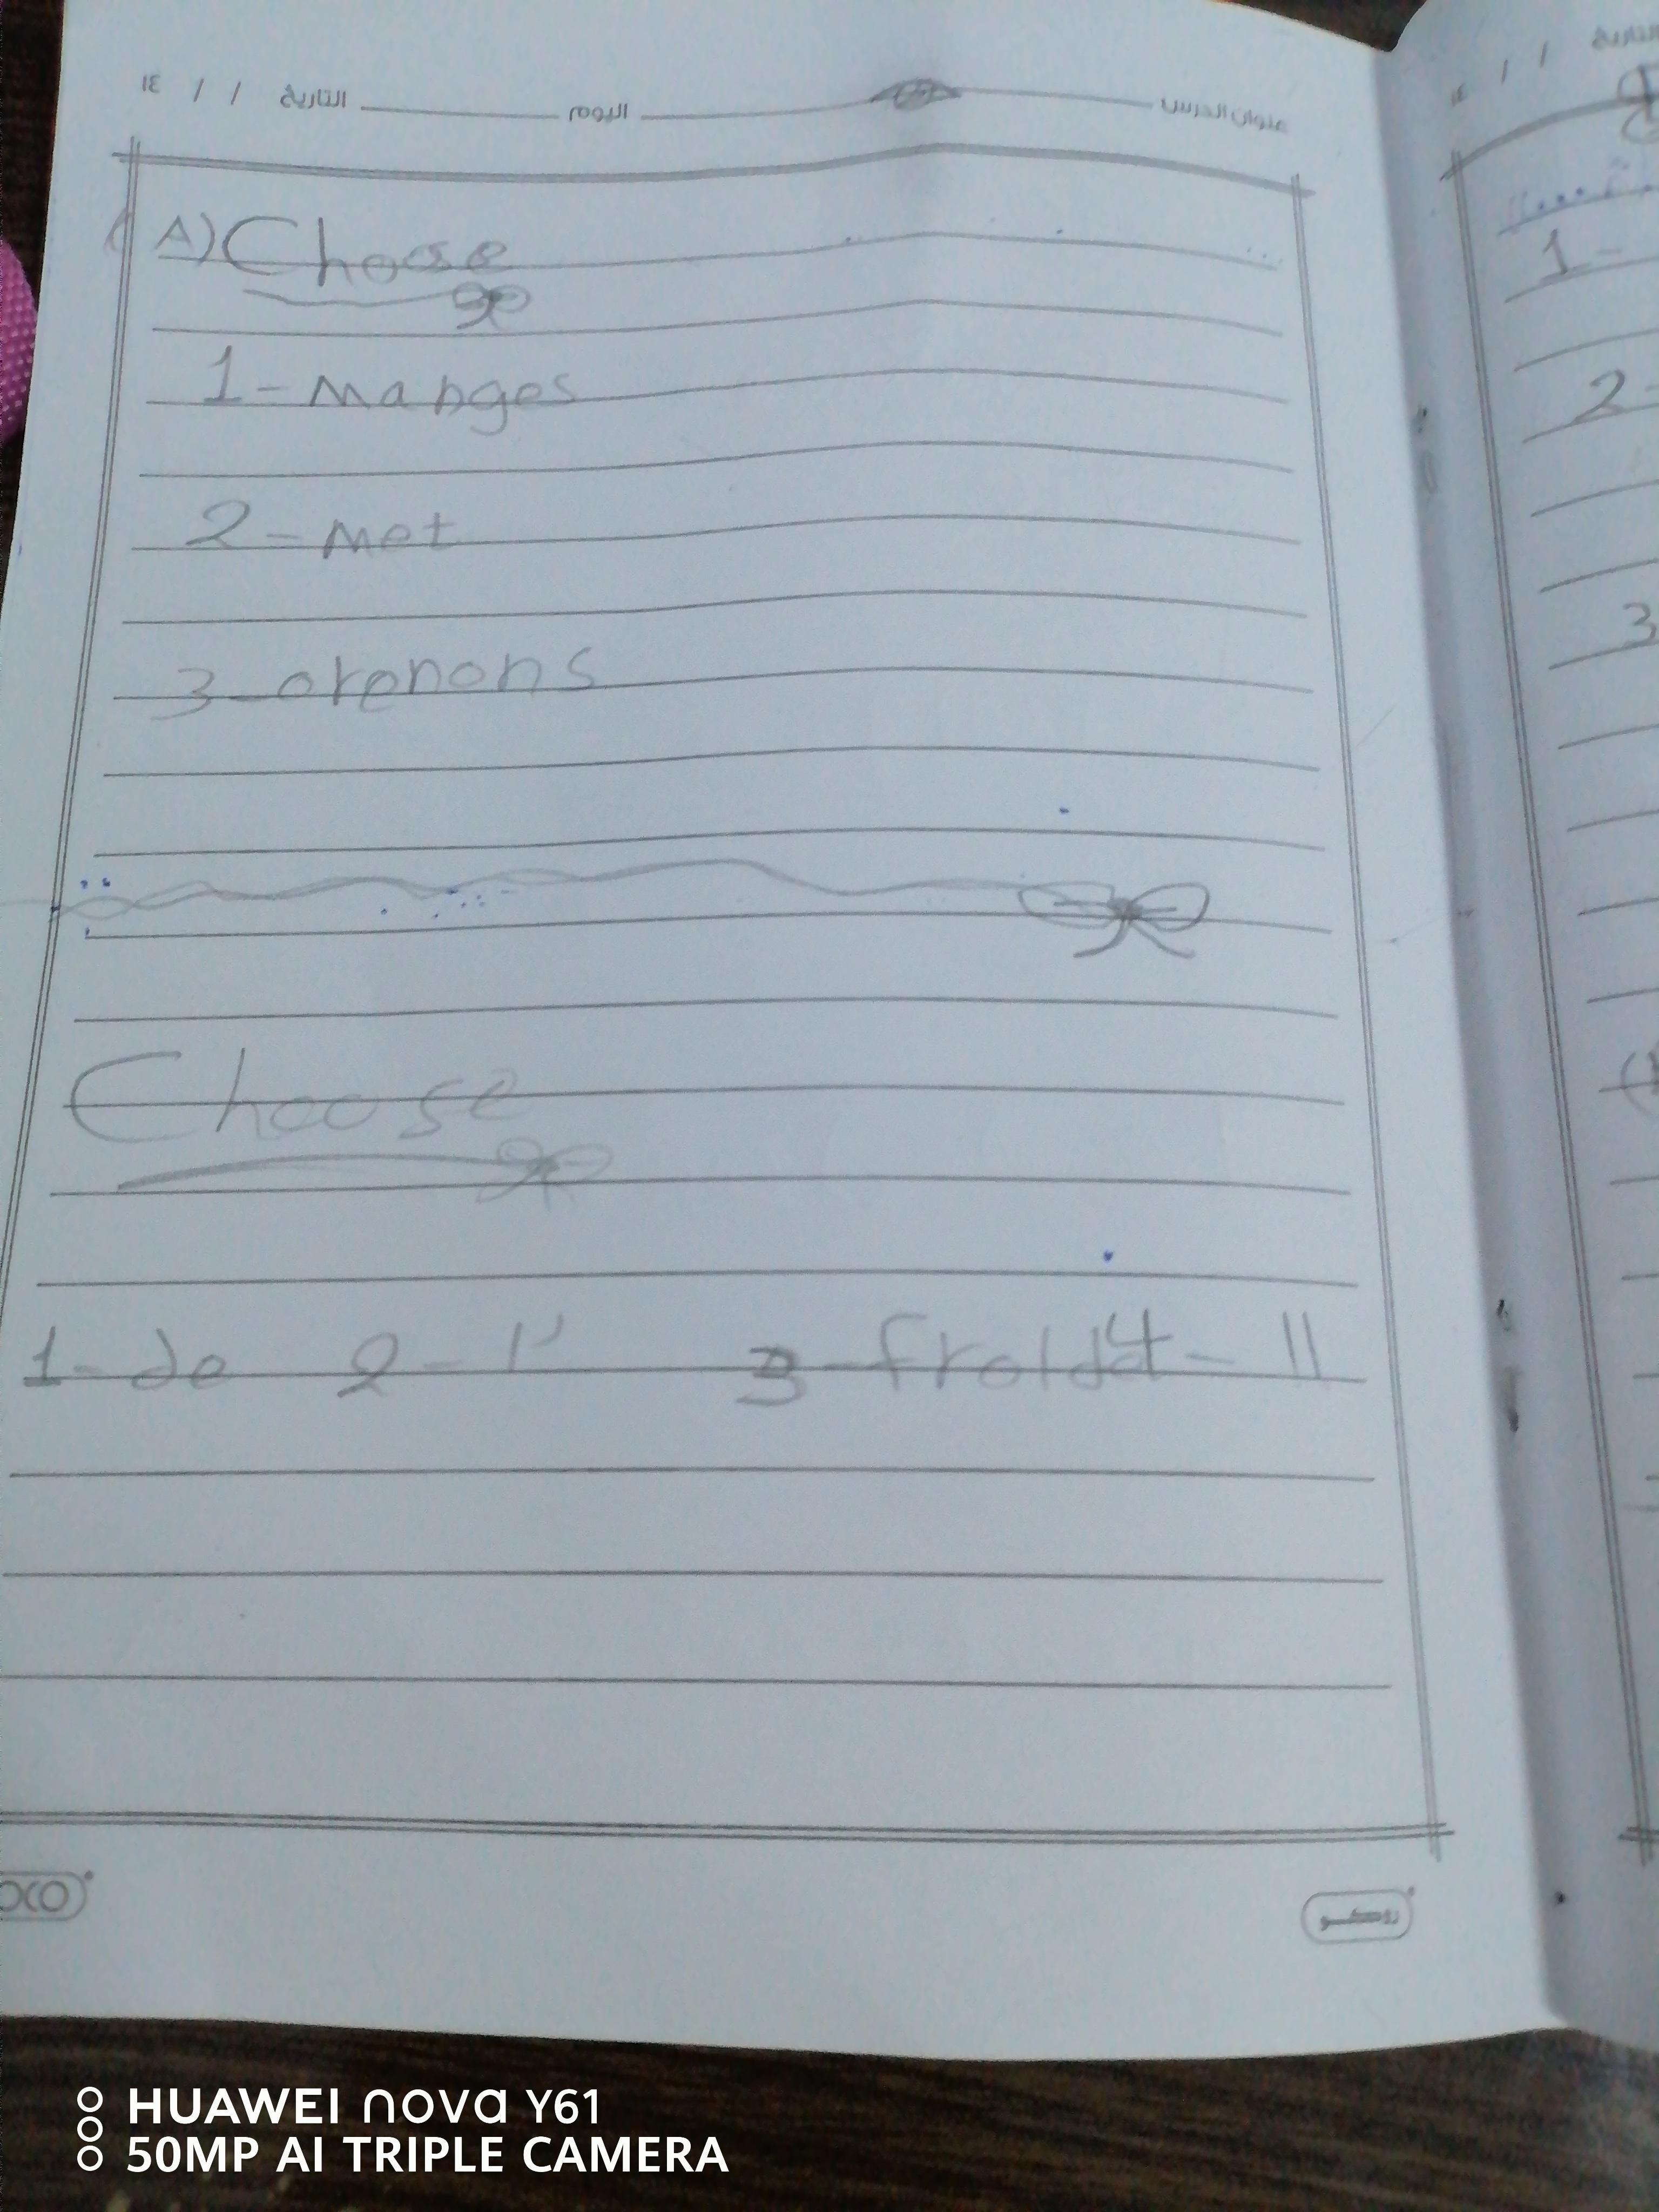 عنوان الدرس اليوم التاريخ / / ١٤
A) Choose
1- manges
2 - met
3 - orenons
Choose
1- de 2 - l' 3 - froid 4 - Il
روكو
HUAWEI nova Y61
50MP AI TRIPLE CAMERA